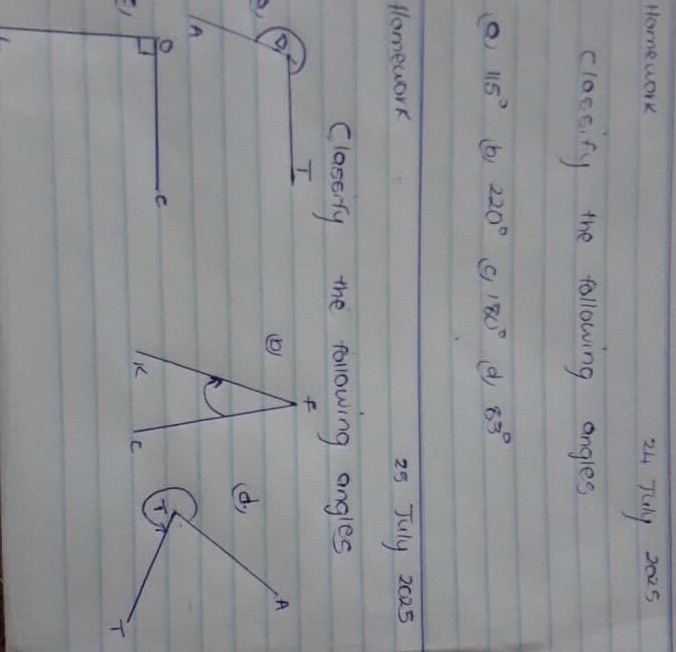 Homework 24 July 2025
Classify the following angles
(a) 115° (b) 220° (c) 180° (d) 83°
Homework 25 July 2025
Classify the following angles
T
A
(b)
F
K
C
(d)
A
T
T
O
C